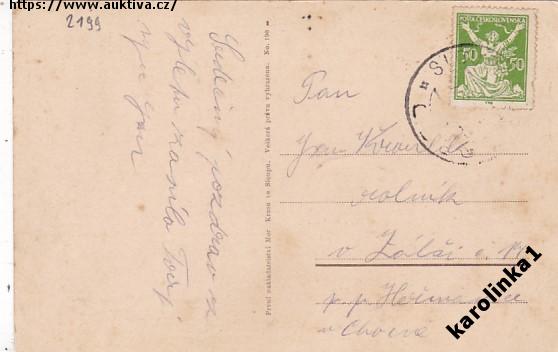 https://www.auktiva.cz/
2199
Srdečný pozdrav z
výletu zasílá Tvůj
syn Jan
První nakladatelství Mor. Krasu ve Sloupu. Veškerá práva vyhrazena. No. 190
POŠTA ČESKOSLOVENSKÁ
50 50
SL
Pan
Jan
rolník
v Zálší č.
p. p. Heřmanice
u Chocně
karolinka1